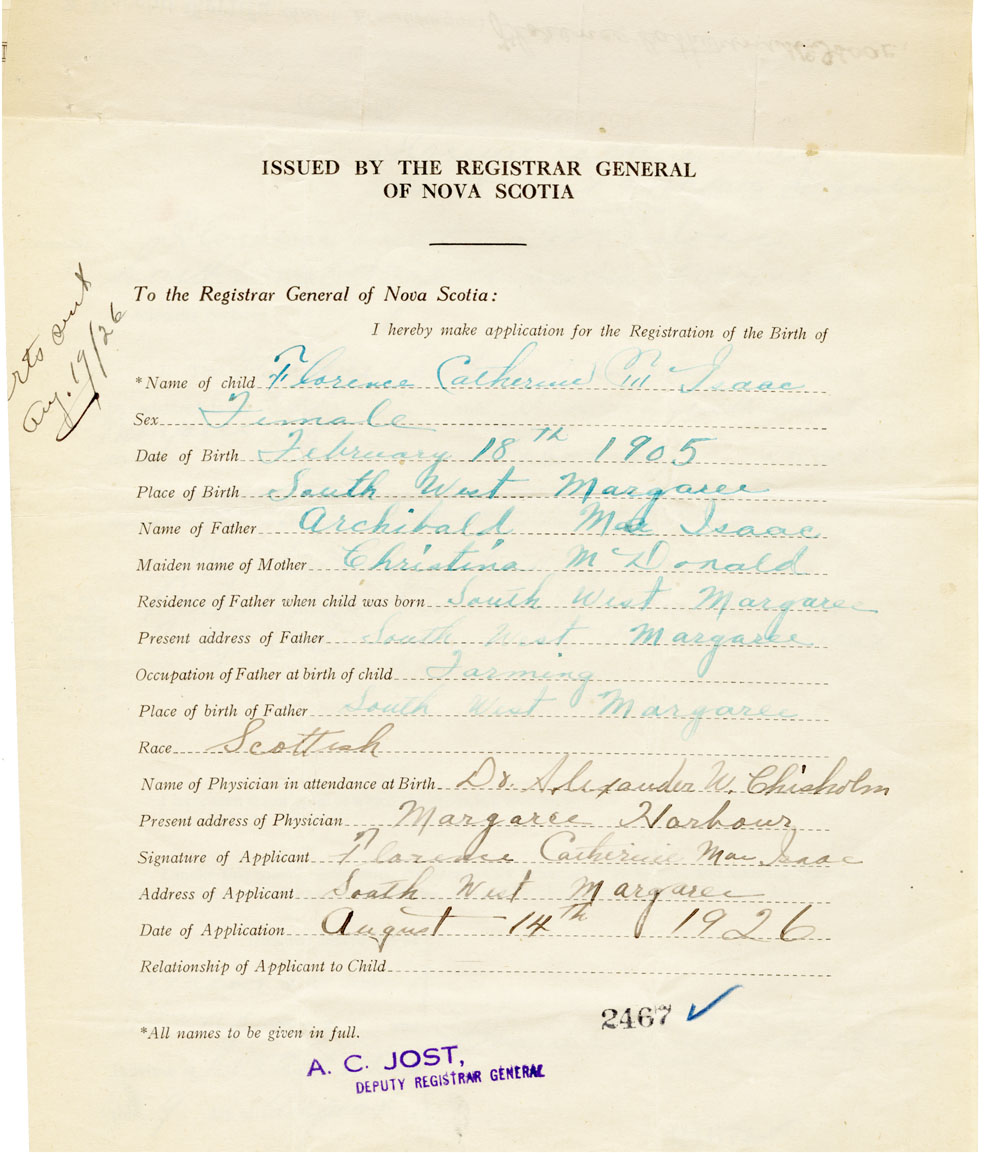 ISSUED BY THE REGISTRAR GENERAL
OF NOVA SCOTIA
To the Registrar General of Nova Scotia:
I hereby make application for the Registration of the Birth of
*Name of child Florence Catherine Mc Isaac
Sex Female
Date of Birth February 18TH 1905
Place of Birth South West Margaree
Name of Father Archibald Mac Isaac
Maiden name of Mother Christina Mc Donald
Residence of Father when child was born South West Margaree
Present address of Father South West Margaree
Occupation of Father at birth of child Farming
Place of birth of Father South West Margaree
Race Scottish
Name of Physician in attendance at Birth Dr. Alexander W. Chisholm
Present address of Physician Margaree Harbour
Signature of Applicant Florence Catherine Mac Isaac
Address of Applicant South West Margaree
Date of Application August 14th 1926
Relationship of Applicant to Child
2467
*All names to be given in full.
A. C. JOST,
DEPUTY REGISTRAR GENERAL
rts sent
Aug. 19/26